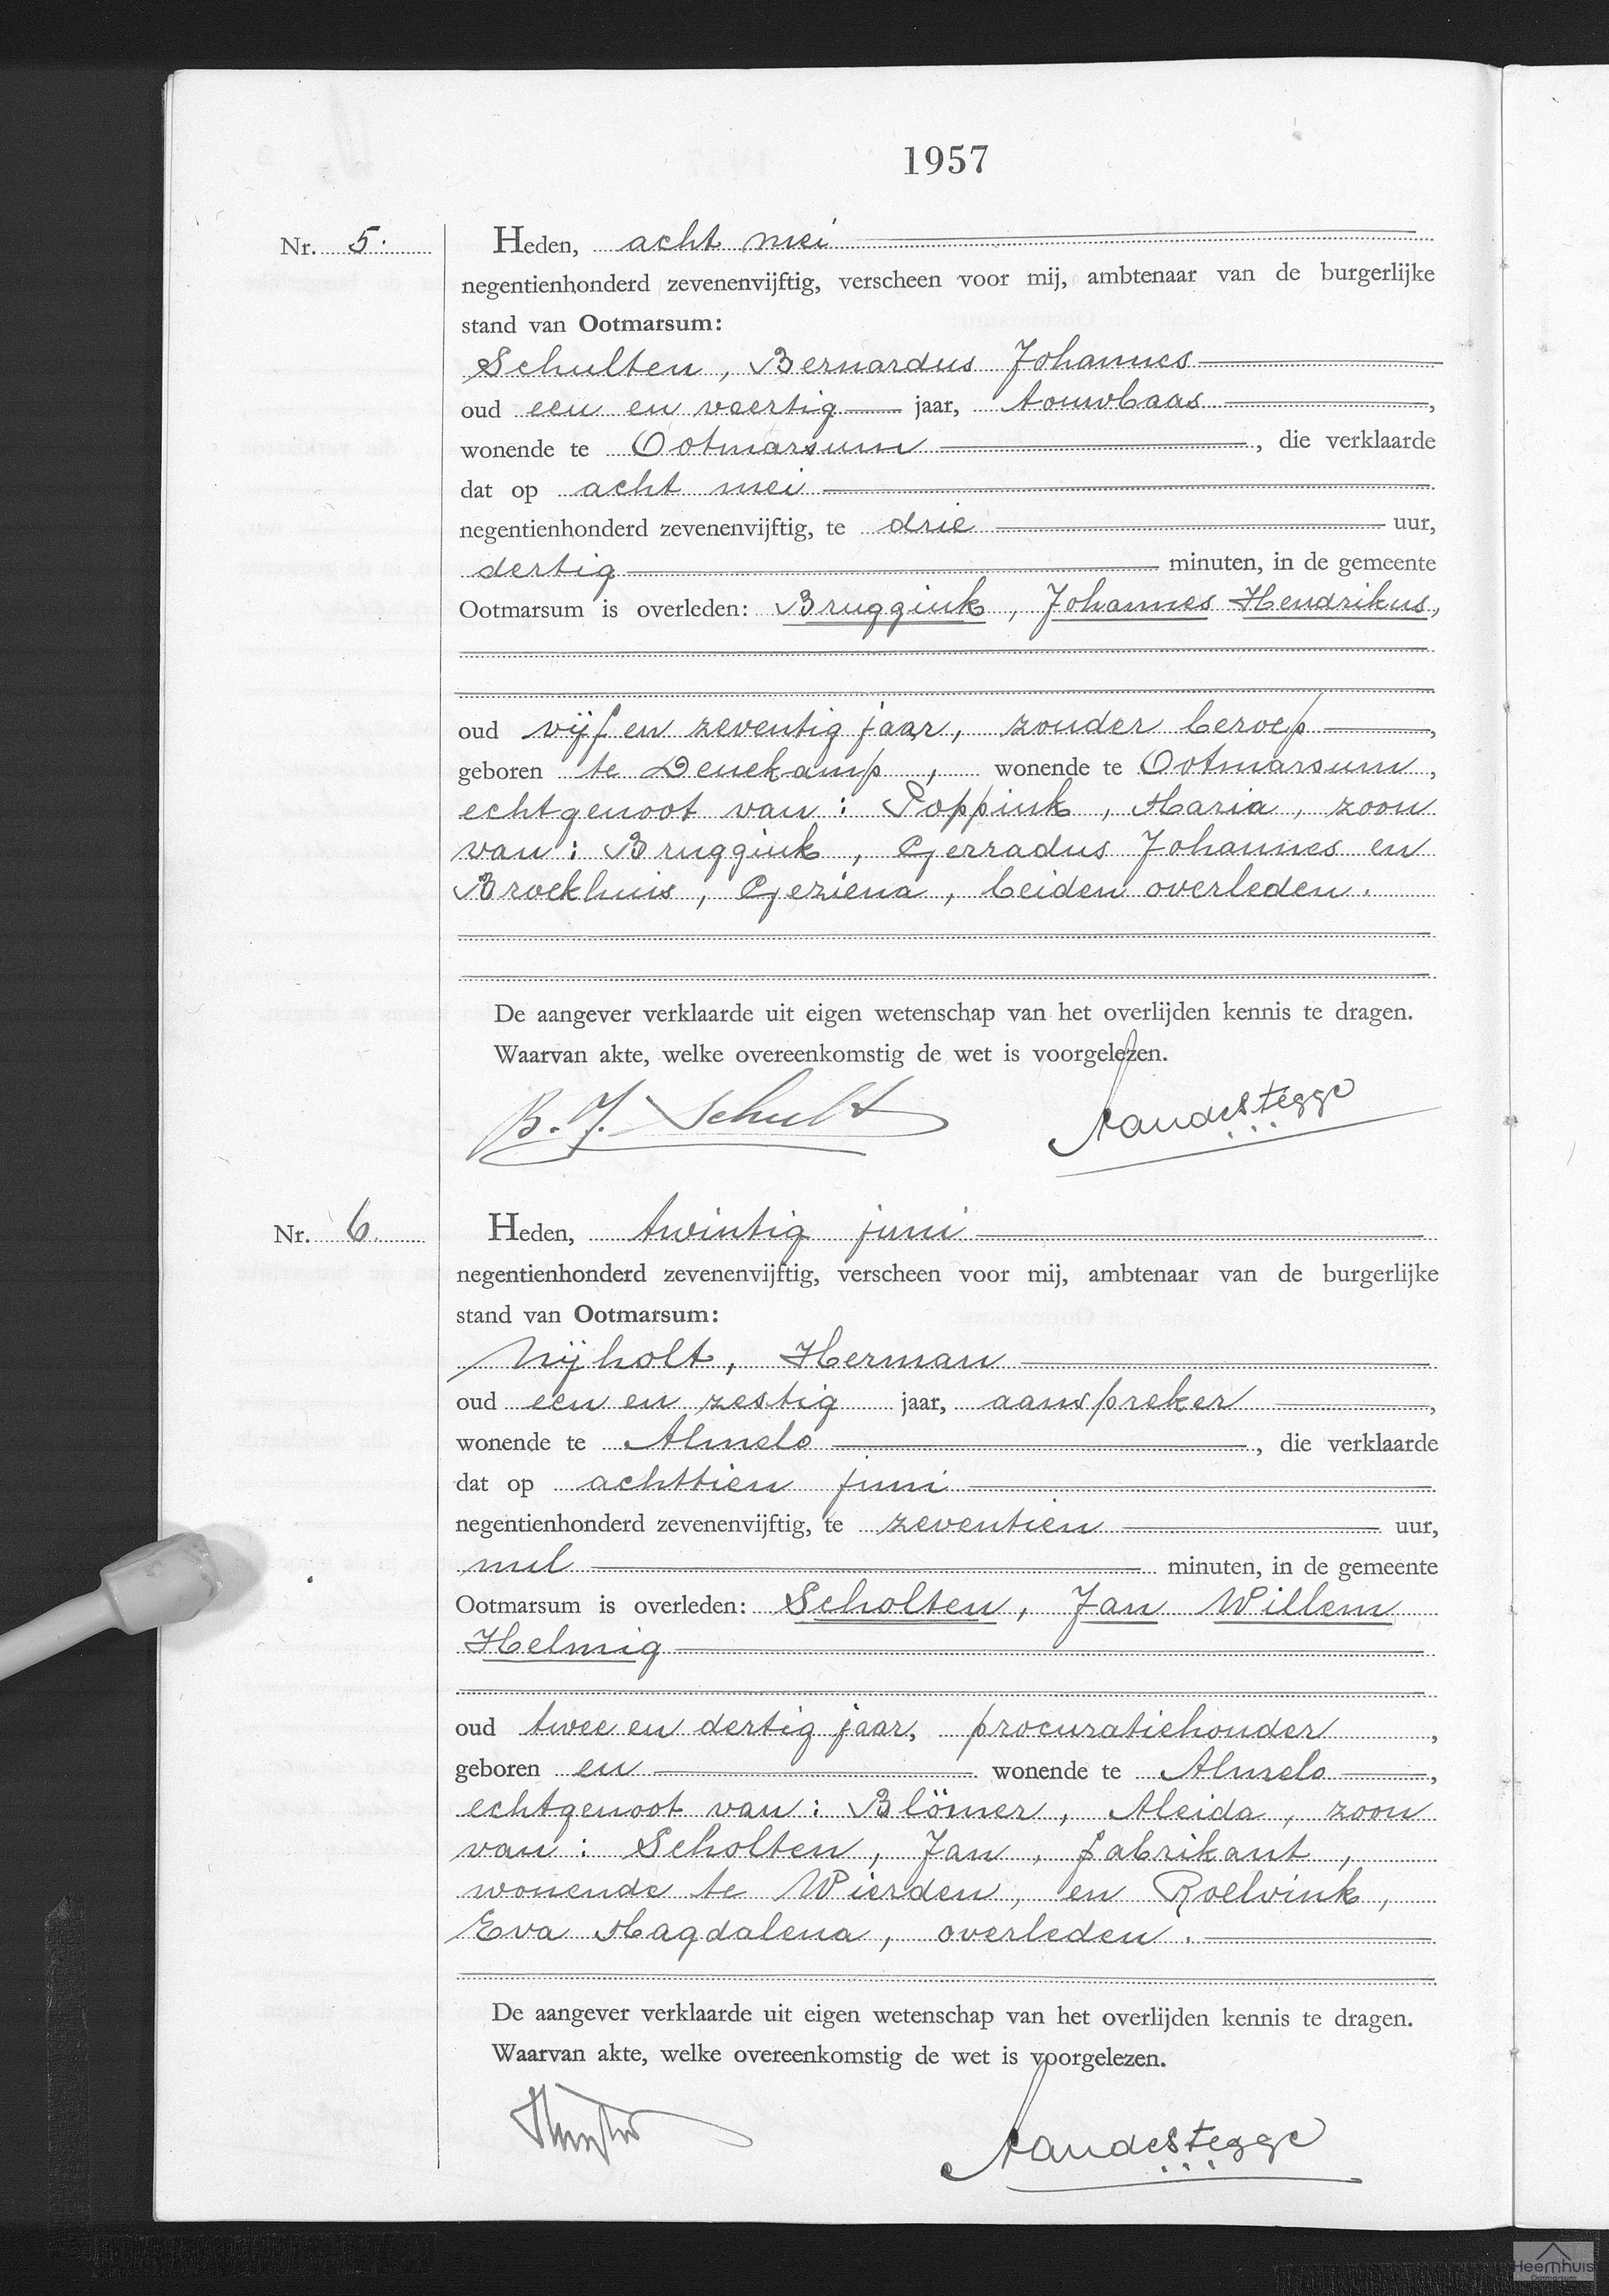 1957
Nr. 5.
Heden, acht mei
negentienhonderd zevenenvijftig, verscheen voor mij, ambtenaar van de burgerlijke
stand van Ootmarsum:
Schulten, Bernardus Johannes
oud een en veertig jaar, touwbaas,
wonende te Ootmarsum, die verklaarde
dat op acht mei
negentienhonderd zevenenvijftig, te drie uur,
dertig minuten, in de gemeente
Ootmarsum is overleden: Bruggink, Johannes Hendrikus,
oud vijf en zeventig jaar, zonder beroep,
geboren te Denekamp, wonende te Ootmarsum,
echtgenoot van: Poppink, Maria, zoon
van: Bruggink, Gerradus Johannes en
Broekhuis, Geziena, beiden overleden.
De aangever verklaarde uit eigen wetenschap van het overlijden kennis te dragen.
Waarvan akte, welke overeenkomstig de wet is voorgelezen.
B. J. Schult
Nr. 6.
Heden, twintig juni
negentienhonderd zevenenvijftig, verscheen voor mij, ambtenaar van de burgerlijke
stand van Ootmarsum:
Nijholt, Herman
oud een en zestig jaar, aanspreker,
wonende te Almelo, die verklaarde
dat op achttien juni
negentienhonderd zevenenvijftig, te zeventien uur,
nul minuten, in de gemeente
Ootmarsum is overleden: Scholten, Jan Willem
Helmig
oud twee en dertig jaar, procuratiehouder,
geboren en wonende te Almelo,
echtgenoot van: Blömer, Aleida, zoon
van: Scholten, Jan, fabrikant,
wonende te Wierden, en Roelvink,
Eva Magdalena, overleden.
De aangever verklaarde uit eigen wetenschap van het overlijden kennis te dragen.
Waarvan akte, welke overeenkomstig de wet is voorgelezen.
Heemhuis